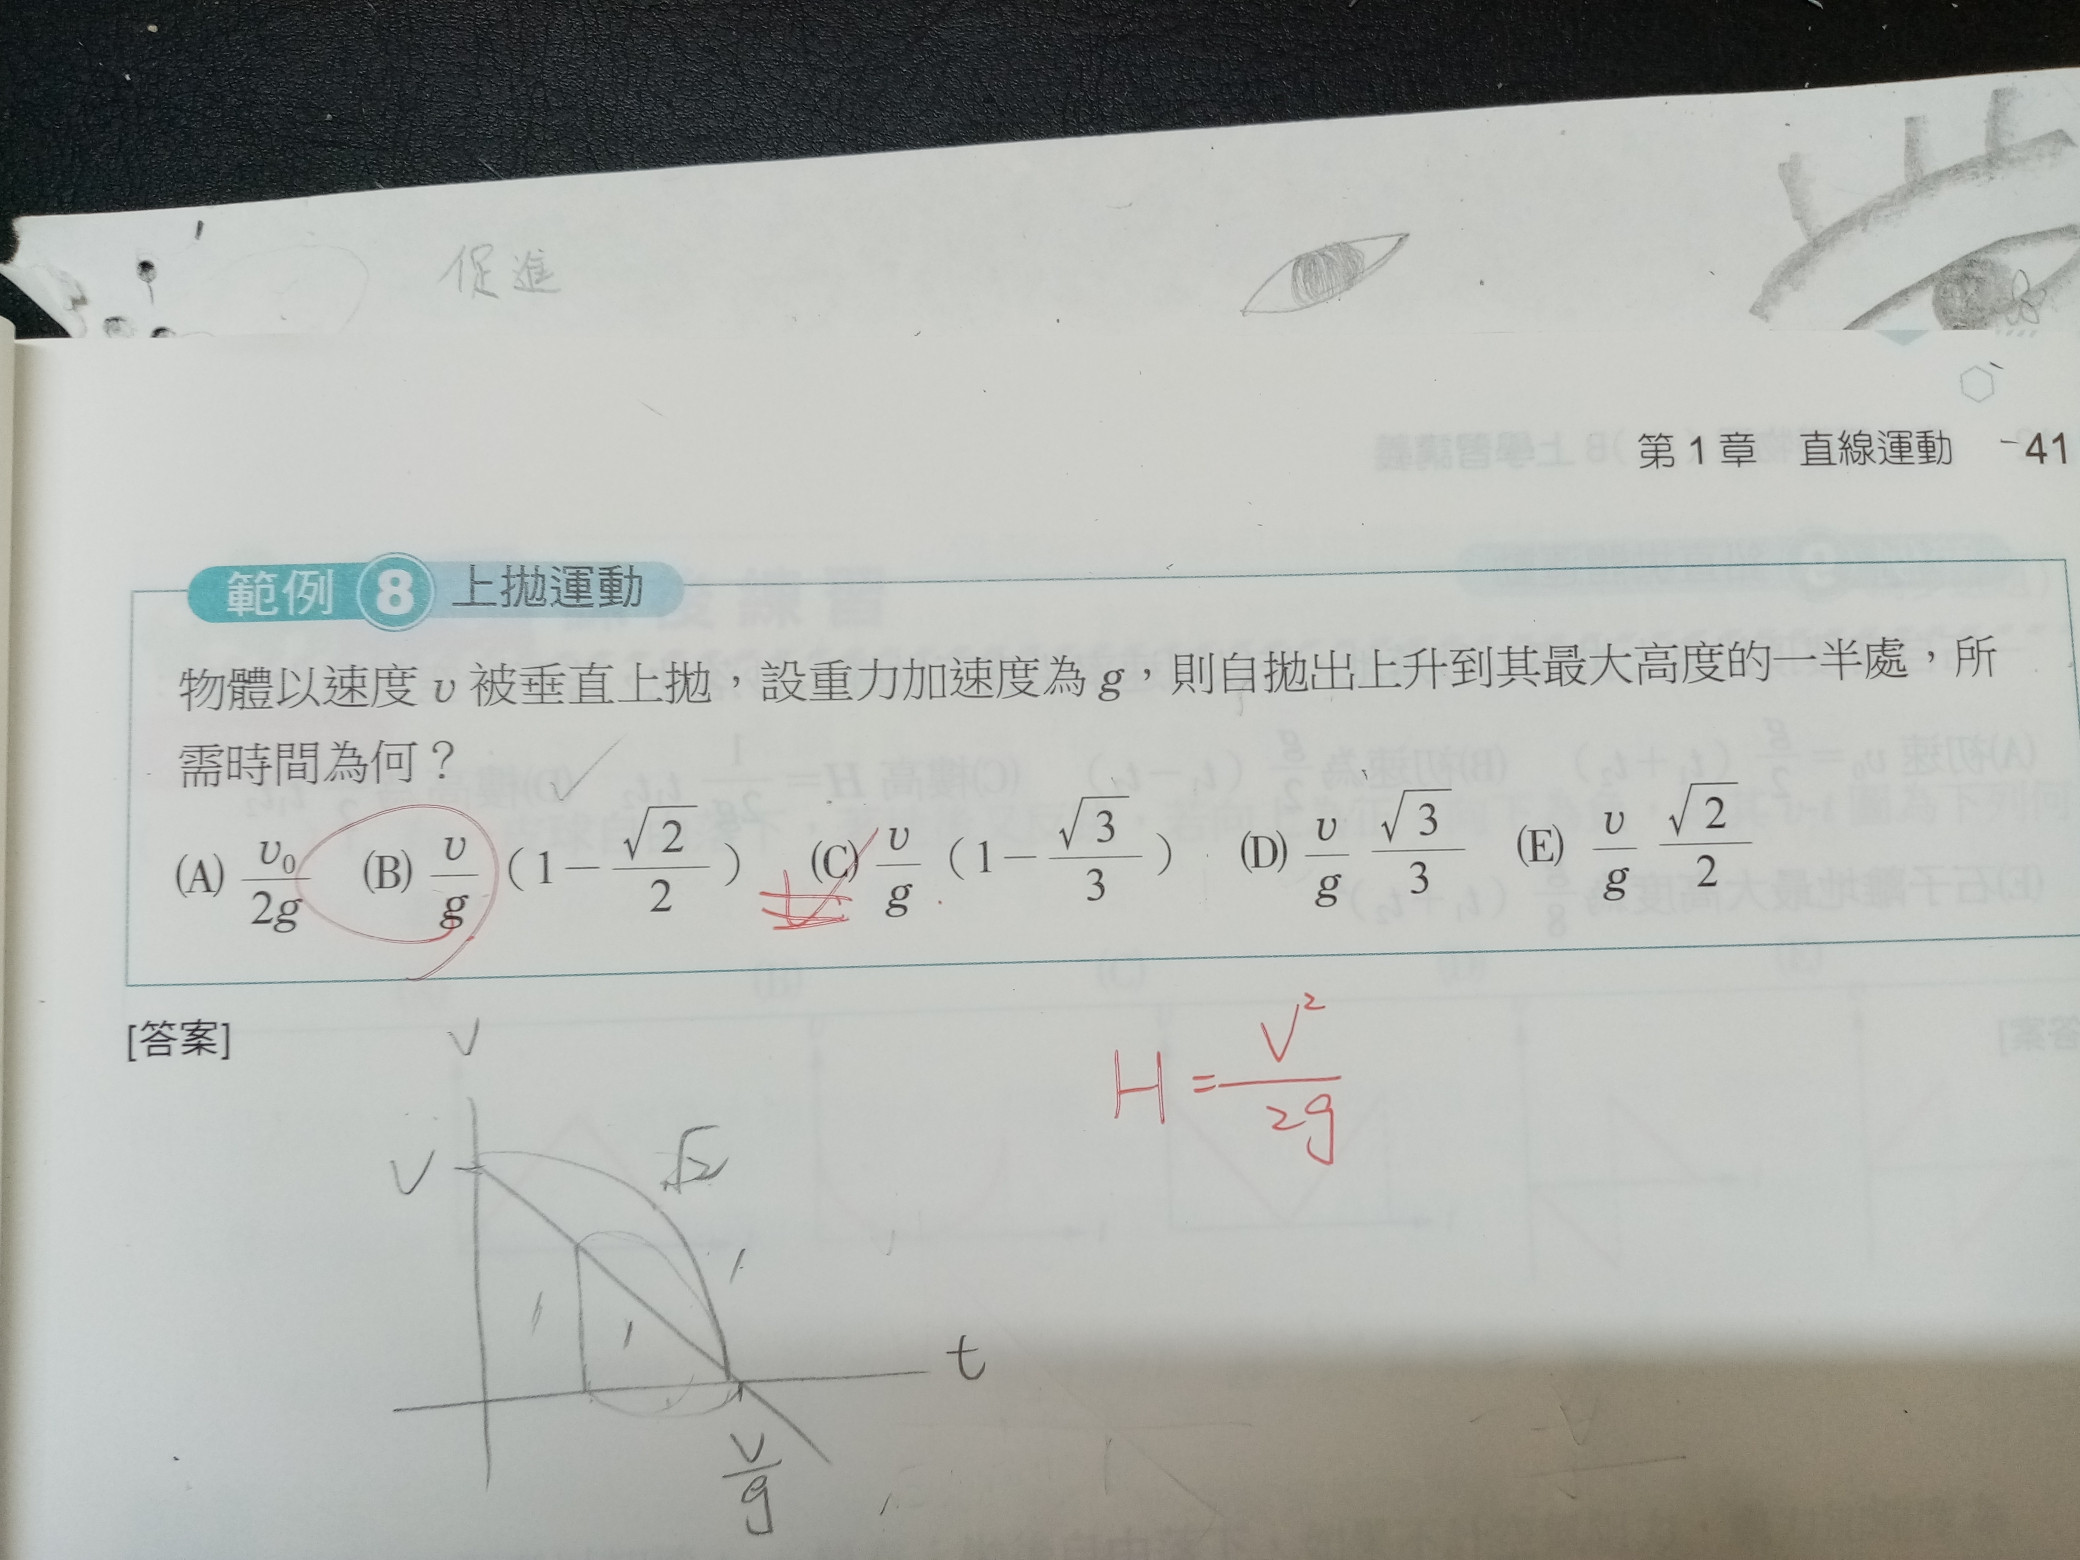 促進
第 1 章　直線運動　-41
範例 8 上拋運動
物體以速度 v 被垂直上拋，設重力加速度為 g，則自拋出上升到其最大高度的一半處，所
需時間為何？
(A) v₀/2g　(B) v/g（1－√2/2）　(C) v/g（1－√3/3）　(D) v/g √3/3　(E) v/g √2/2
[答案]
H = V²/2g
V
V
√2
1
1
1
t
V/g